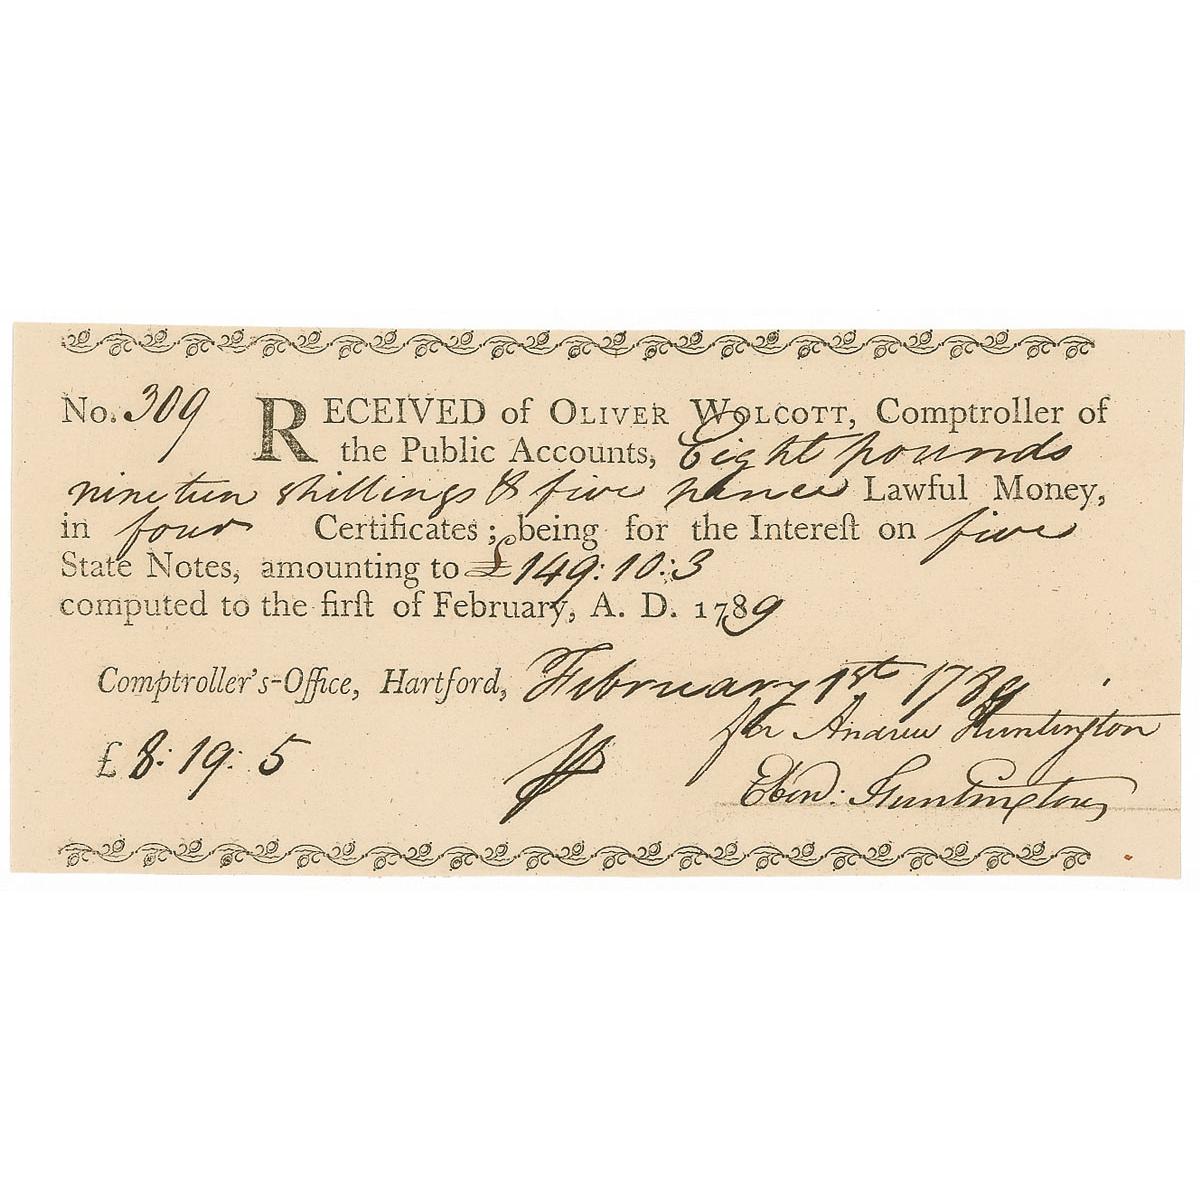 No. 309 RECEIVED of OLIVER WOLCOTT, Comptroller of
the Public Accounts, Eight pounds
nineteen shillings & five pence Lawful Money,
in four Certificates; being for the Intereſt on five
State Notes, amounting to £149:10:3
computed to the firſt of February, A. D. 1789
Comptroller's-Office, Hartford, February 1st 1789
for Andrew Huntington
£ 8: 19: 5
Eben: Huntington